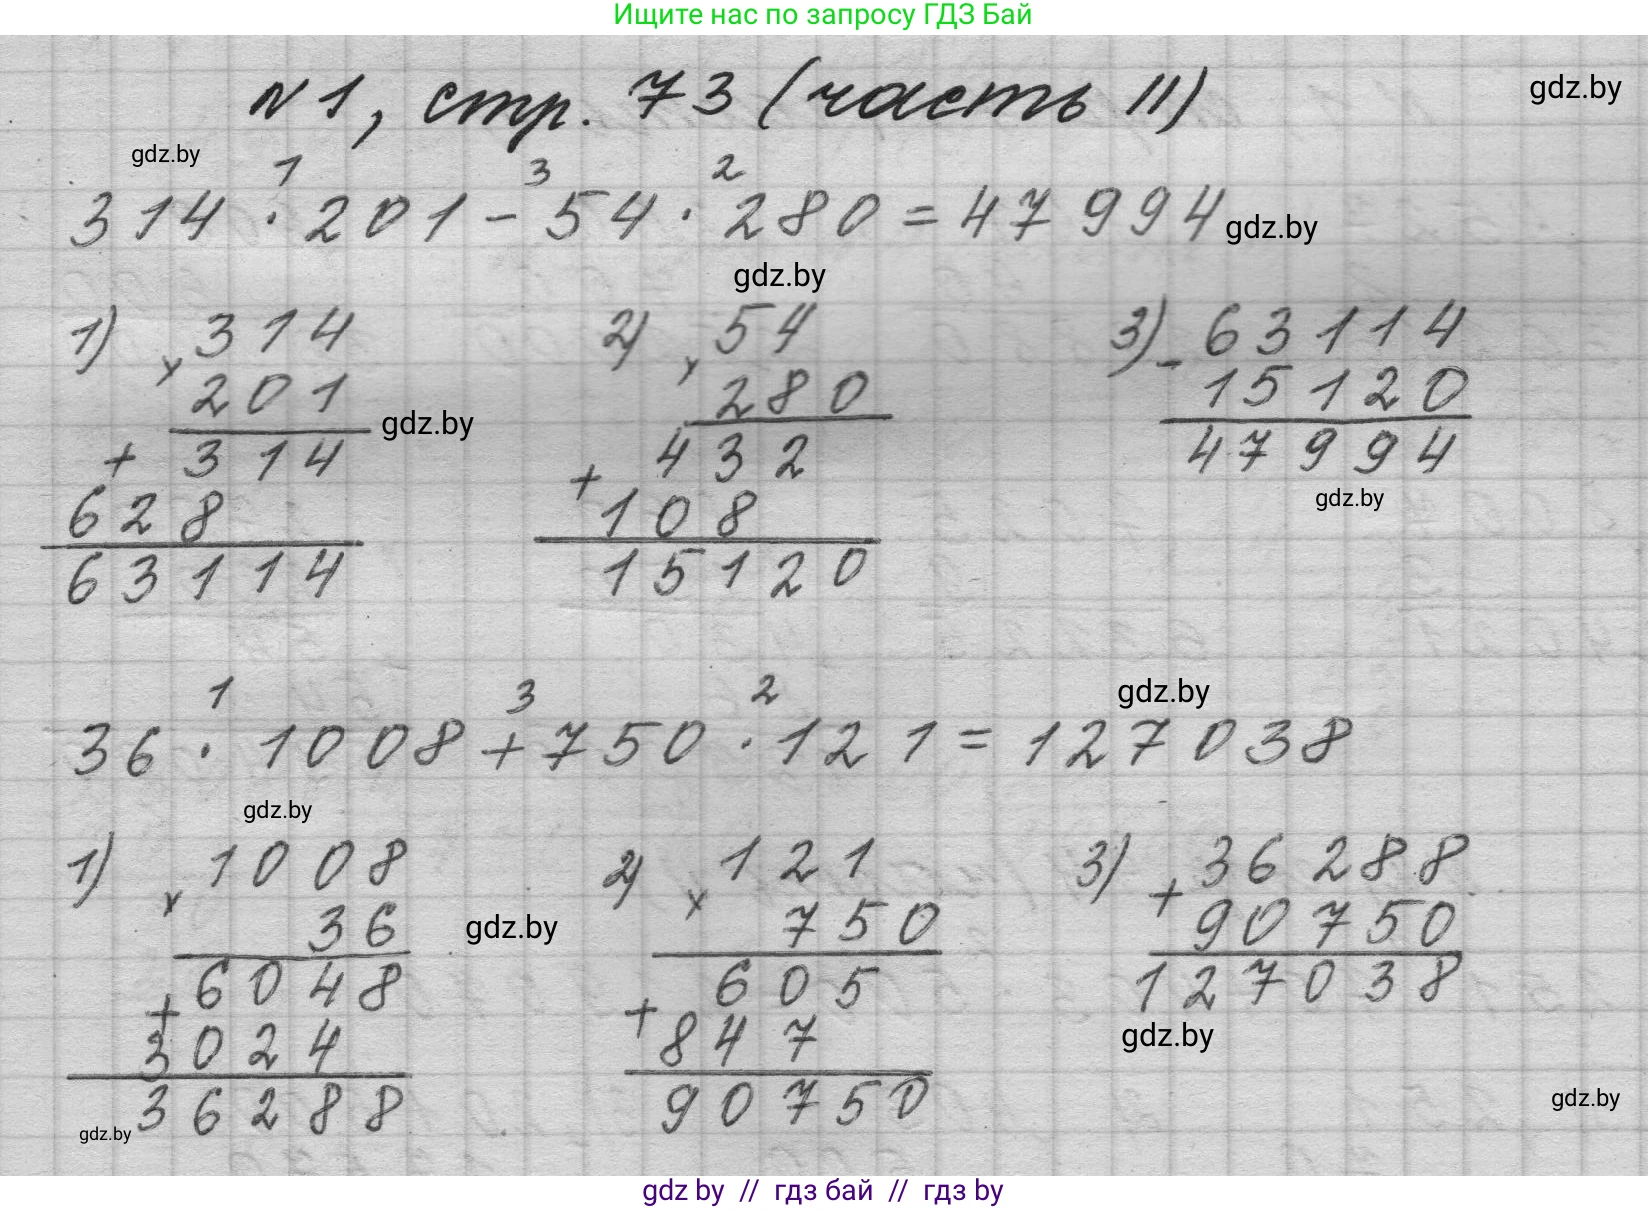 Ищите нас по запросу ГДЗ Бай
№1, стр. 73 (часть II)
gdz.by
gdz.by
1 3 2
314 · 201 - 54 · 280 = 47994
gdz.by
gdz.by
1) × 314
201
+ 314
628
63114
gdz.by
2) × 54
280
+ 432
108
15120
3) - 63114
15120
47994
gdz.by
1 3 2
36 · 1008 + 750 · 121 = 127038
gdz.by
gdz.by
1) × 1008
36
+ 6048
3024
36288
gdz.by
gdz.by
2) × 121
750
+ 605
847
90750
3) + 36288
90750
127038
gdz.by
gdz.by
gdz by // гдз бай // гдз by